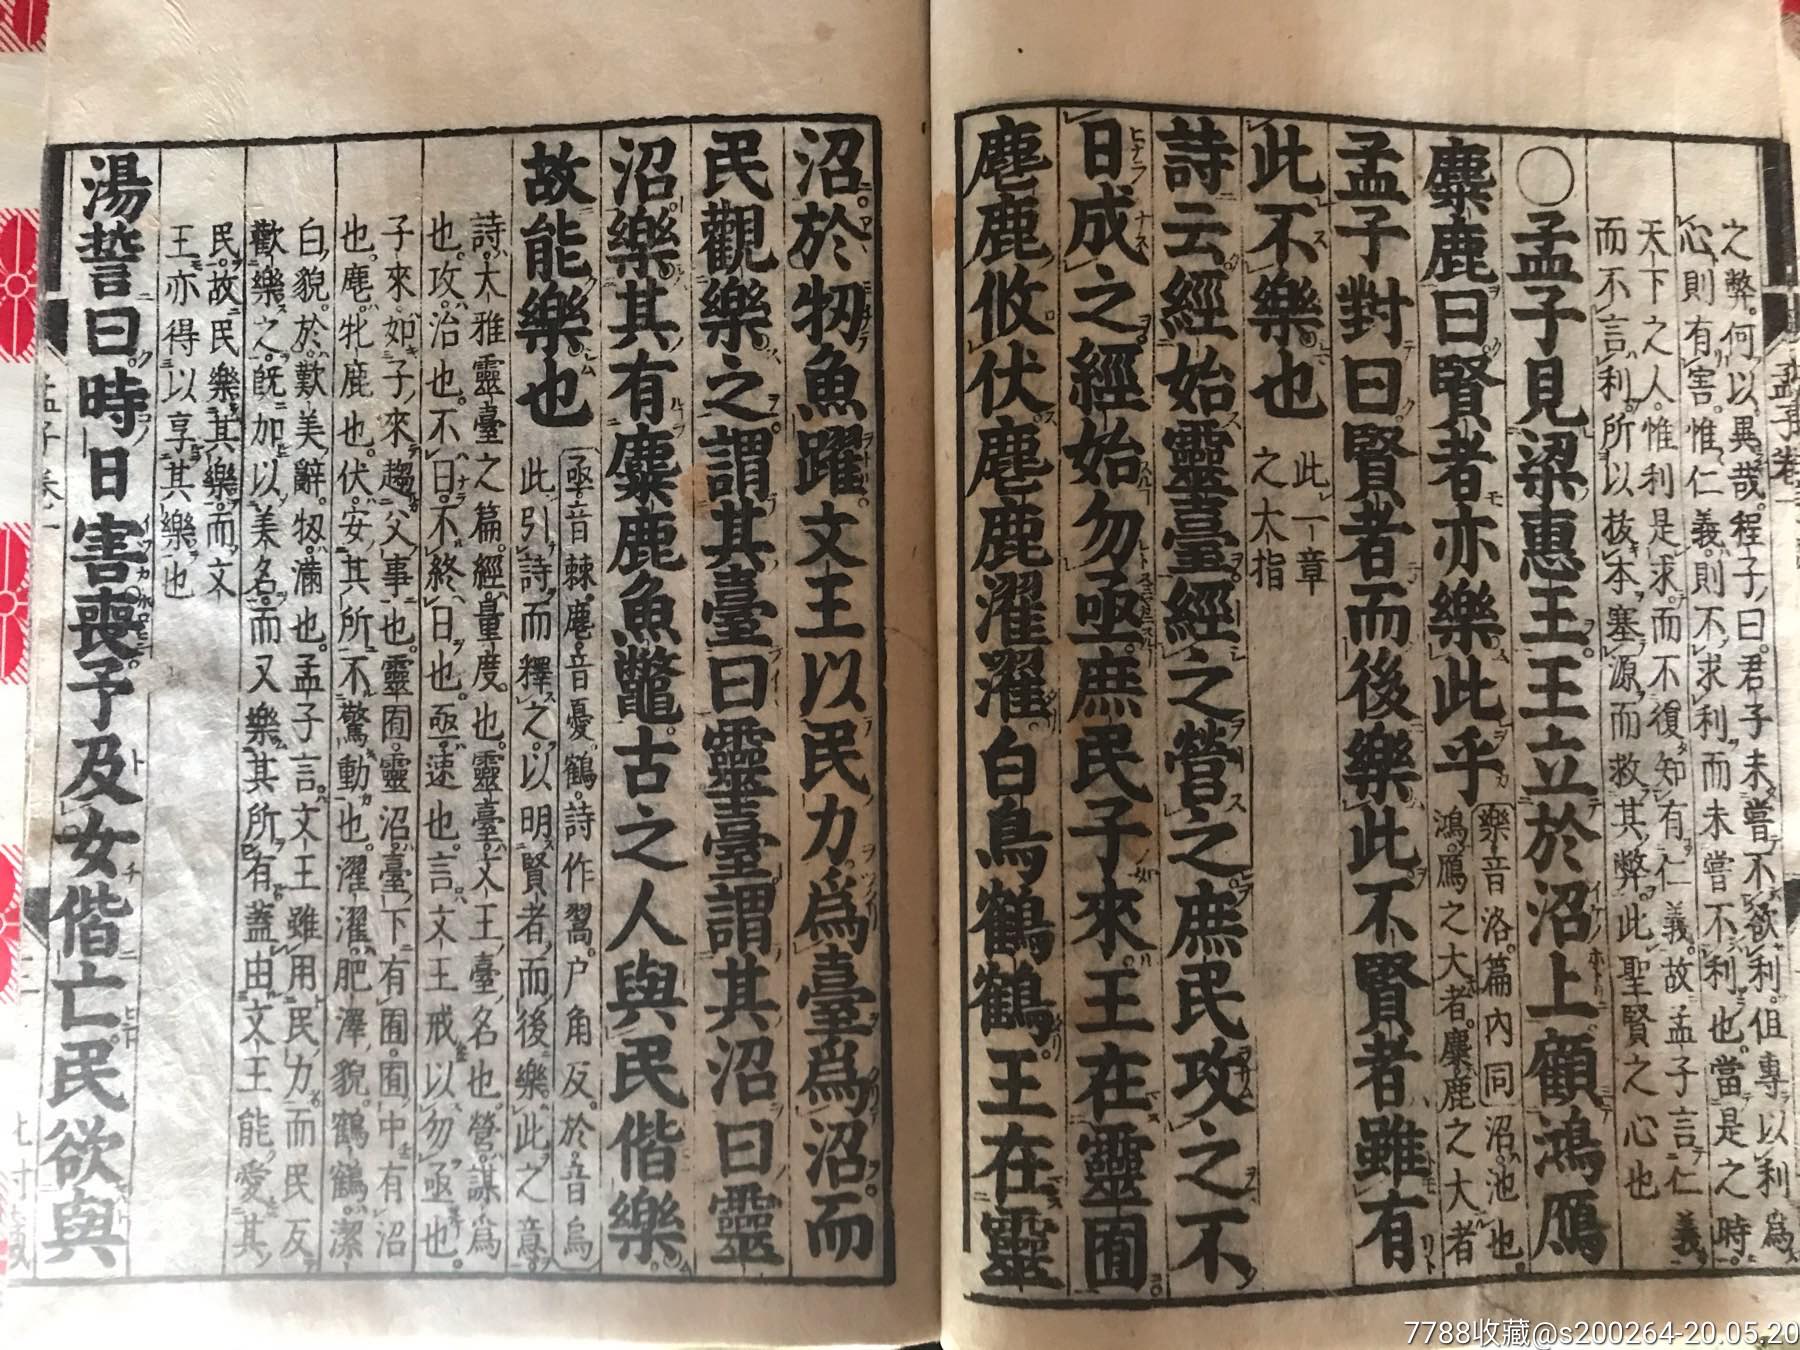 之弊何以異哉程子曰君子未嘗不欲利但專以利爲
心則有害惟仁義則不求利而未嘗不利也當是之時
天下之人惟利是求而不復知有仁義故孟子言仁義
而不言利所以拔本塞源而救其弊此聖賢之心也
○孟子見梁惠王王立於沼上顧鴻鴈
麋鹿曰賢者亦樂此乎
樂音洛篇內同沼池也
鴻鴈之大者麋鹿之大者
孟子對曰賢者而後樂此不賢者雖有
此不樂也
此一章
之大指
詩云經始靈臺經之營之庶民攻之不
日成之經始勿亟庶民子來王在靈囿
麀鹿攸伏麀鹿濯濯白鳥鶴鶴王在靈
沼於牣魚躍文王以民力爲臺爲沼而
民觀樂之謂其臺曰靈臺謂其沼曰靈
沼樂其有麋鹿魚鼈古之人與民偕樂
故能樂也
亟音棘麀音憂鶴詩作翯户角反於音烏
此引詩而釋之以明賢者而後樂此之意
詩大雅靈臺之篇經量度也靈臺文王臺名也營謀爲
也攻治也不日不終日也亟速也言文王戒以勿亟也
子來如子來趨父事也靈囿靈沼臺下有囿囿中有沼
也麀牝鹿也伏安其所不驚動也濯濯肥澤貌鶴鶴潔
白貌於歎美辭牣滿也孟子言文王雖用民力而民反
歡樂之旣加以美名而又樂其所有蓋由文王能愛其
民故民樂其樂而文
王亦得以享其樂也
湯誓曰時日害喪予及女偕亡民欲與
孟子卷一
7788收藏@s200264-20.05.20